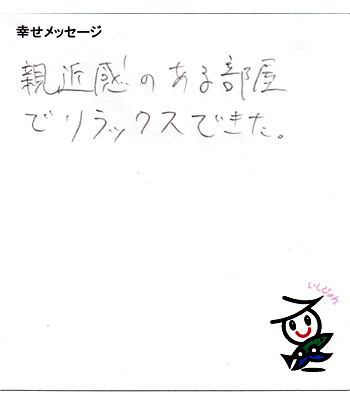 幸せメッセージ
親近感のある部屋
でリラックスできた。